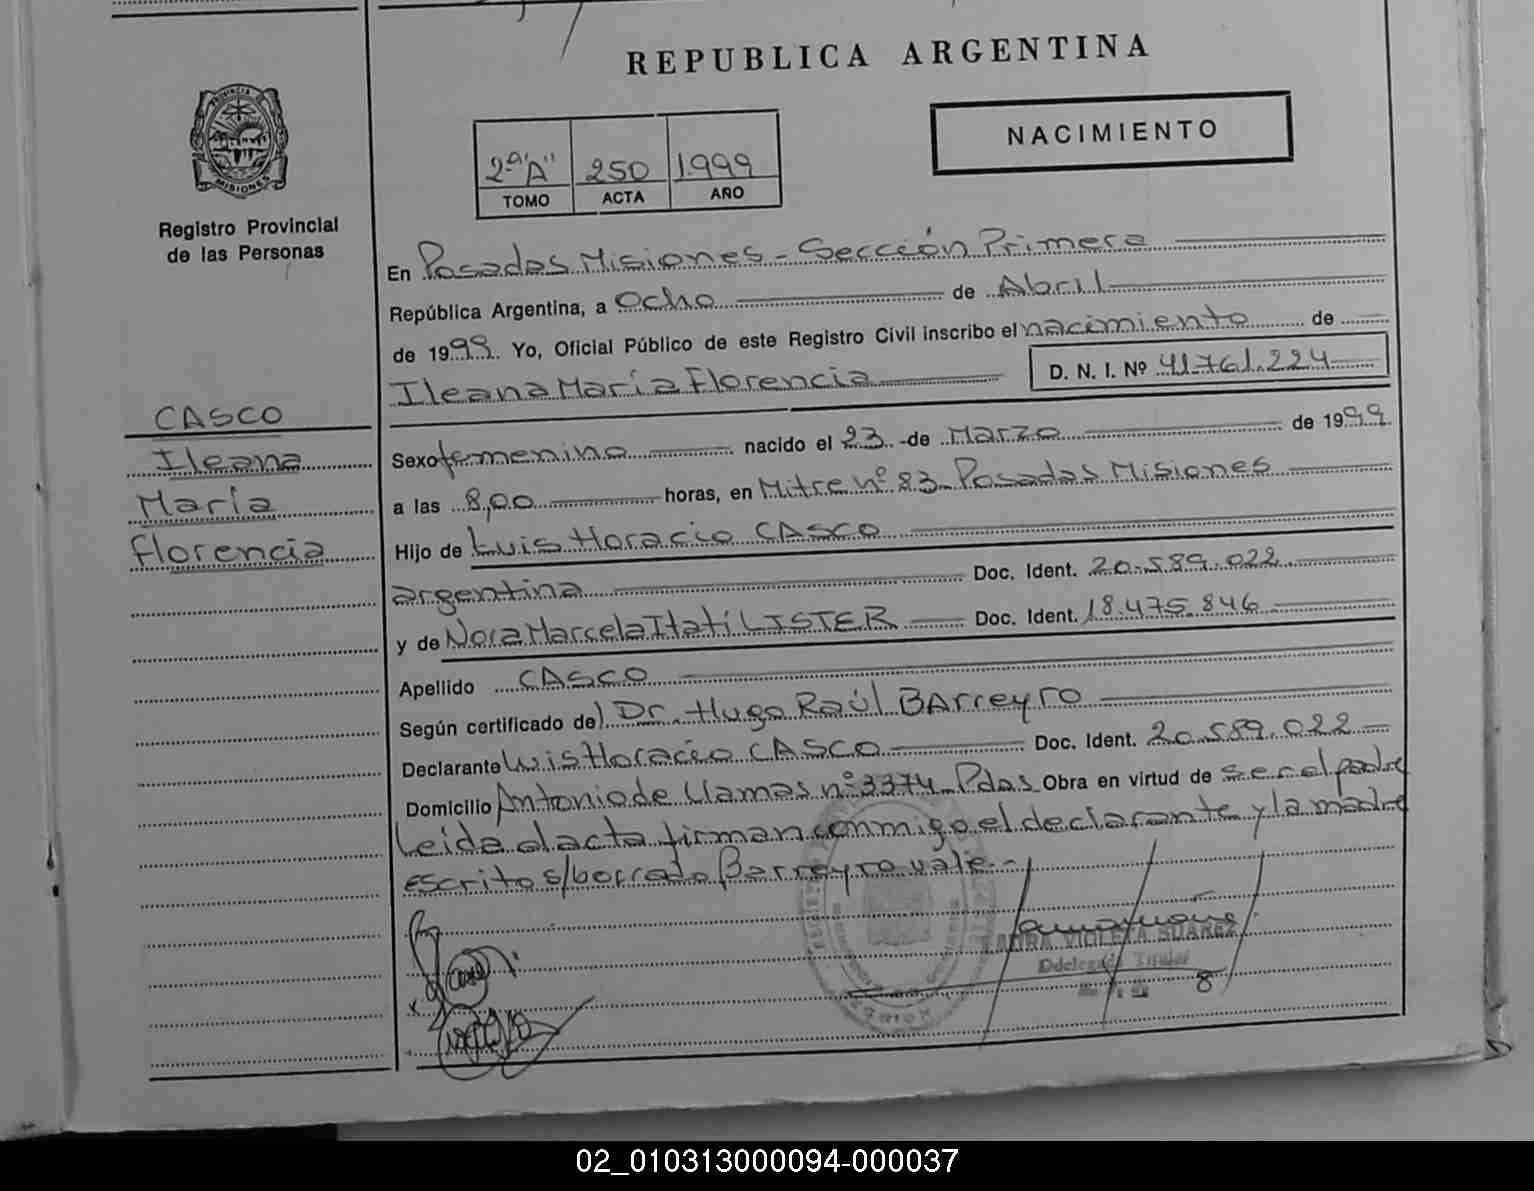 REPUBLICA ARGENTINA
PROVINCIA DE
MISIONES
Registro Provincial
de las Personas
NACIMIENTO
2º"A" 250 1.999
TOMO ACTA AÑO
En Posadas Misiones - Sección Primera
República Argentina, a Ocho de Abril
de 1999. Yo, Oficial Público de este Registro Civil inscribo el nacimiento de
Ileana María Florencia D. N. I. Nº 41.761.224
CASCO
Ileana
María
Florencia
Sexo femenino nacido el 23 de Marzo de 1999
a las 8,00 horas, en Mitre nº 83 - Posadas Misiones
Hijo de Luis Horacio CASCO
argentina Doc. Ident. 20.589.022
y de Nora Marcela Itatí LISTER Doc. Ident. 18.475.846
Apellido CASCO
Según certificado del Dr. Hugo Raúl BArreyro
Declarante Luis Horacio CASCO Doc. Ident. 20.589.022
Domicilio Antonio de Llamas nº 3374 - Pdas Obra en virtud de ser el padre
Leída el acta firman conmigo el declarante y la madre
escrito s/borrado Barreyro vale.-
LAURA VIOLETA SUAREZ
Delegada Titular
02_010313000094-000037